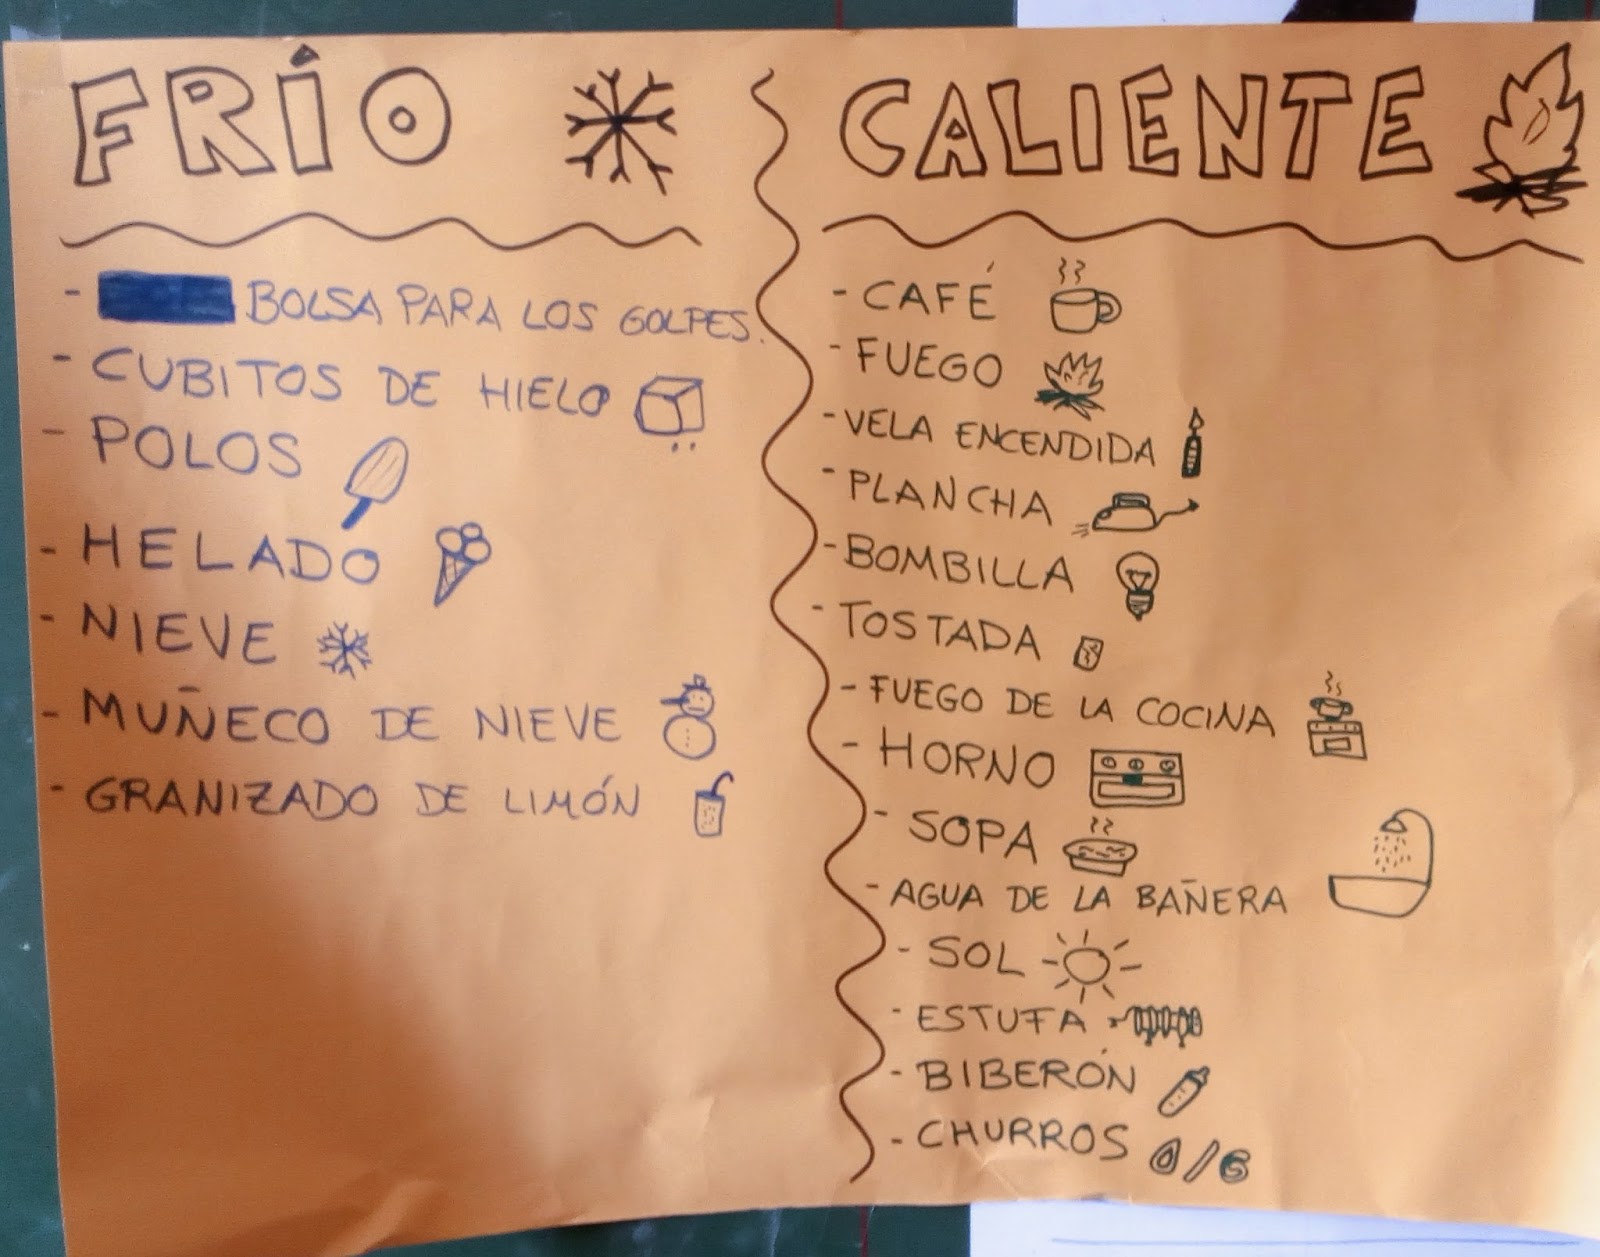 FRÍO
- BOLSA PARA LOS GOLPES.
- CUBITOS DE HIELO
- POLOS
- HELADO
- NIEVE
- MUÑECO DE NIEVE
- GRANIZADO DE LIMÓN
CALIENTE
- CAFÉ
- FUEGO
- VELA ENCENDIDA
- PLANCHA
- BOMBILLA
- TOSTADA
- FUEGO DE LA COCINA
- HORNO
- SOPA
- AGUA DE LA BAÑERA
- SOL
- ESTUFA
- BIBERÓN
- CHURROS